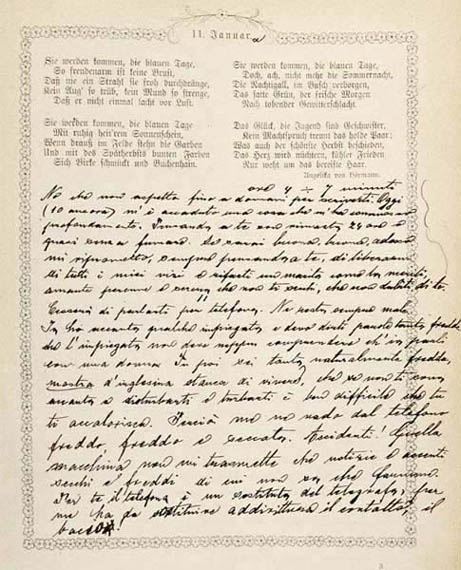 11. Januar.
Sie werden kommen, die blauen Tage,
So freudenarm ist keine Brust,
Daß nie ein Strahl sie froh durchdränge,
Kein Aug' so trüb, kein Mund so strenge,
Daß er nicht einmal lacht vor Lust.
Sie werden kommen, die blauen Tage
Mit ruhig heit'rem Sonnenschein,
Wenn drauß im Felde stehn die Garben
Und mit des Spätherbsts bunten Farben
Sich Birke schmückt und Buchenhain.
Sie werden kommen, die blauen Tage,
Doch, ach, nicht mehr die Sommernacht,
Die Nachtigall, im Busch verborgen,
Das satte Grün, der frische Morgen
Nach tobender Gewitterschlacht.
Das Glück, die Jugend sind Geschwister,
Kein Machtspruch trennt das holde Paar;
Was auch der schönste Herbst beschieden,
Das Herz wird nüchtern, kühler Frieden
Nur weht um das bereifte Haar.
Angelika von Hörmann.
ore 4 e 7 minuti
No che non aspetto fino a domani per scriverti. Oggi
(10 ancora) mi è accaduta una cosa che m'ha commosso
profondamente. Pensando a te son rimasto 24 ore
quasi senza fumare. Se sarai buona, buona, adesso
mi riprometto, sempre pensando a te, di liberarmi
di tutti i miei vizi e rifarti un marito come lo meriti,
amante perenne e sereno che non ti senti, che non dubiti di te.
Cesserò di parlarti per telefono. Ne resto sempre male.
Io ho accanto qualche impiegato e devo dirti parole tanto fredde
che l'impiegato non deve neppur comprendere ch'io parli
con una donna. Tu poi sei tanto naturalmente fredda,
mostra d'inglesina stanca di vivere, che se non ti sono
accanto a disturbarti e turbarti è ben difficile che tu
ti accalorisca. Perciò me ne vado dal telefono
freddo, freddo e seccato. Accidenti! Quella
macchina non mi trasmette che notizie e accenti
secchi e freddi di cui non so che farmene.
Per te il telefono è un sostituto del telegrafo; per
me ha da sostituire addirittura il contatto, il
bacio!
3